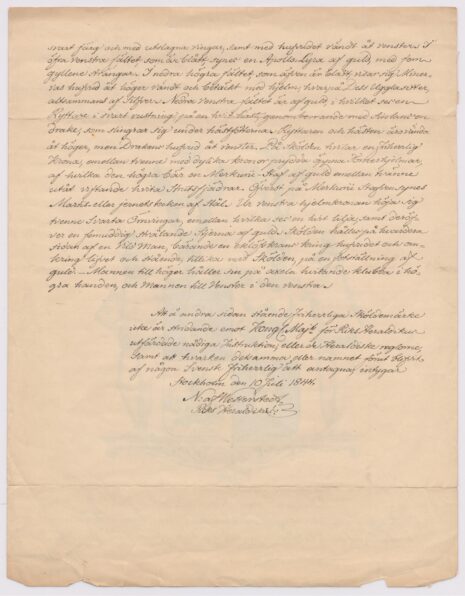 svart färg och med utslagna vingar, samt med hufvudet vändt åt venster. I
öfra venstra fältet som är blått, synes en Apollo Lyra af guld, med fem
gyllene strängar. I nedra högra fältet, som äfven är blått, visar sig Miner-
vas hufvud åt höger vändt och betäckt med hjelm, hvarpå dess Uggla sitter,
altsammans af Silfver. Nedra venstra fältet är af guld, i hvilket ses en
Ryttare i svart rustning på en hvit häst, genomborrande med Lansen en
drake, som slingrar sig under hästfötterna. Ryttaren och hästen äro vända
åt höger, men Drakens hufvud åt venster. På Skölden hvilar en friherrlig
krona, emellan tvenne med dylika kronor prydda öppna Torneihjelmar,
af hvilka den högra bär en Merkurii-Staf af guld emellan tvänne
utåt viftande hvita Strutsfjädrar. Öfverst på Merkurii Stafven synes
Martis eller jernets tecken af Stål. Ur venstra hjelmkronan höja sig
trenne Svarta Örnvingar, emellan hvilka ses en hvit lilja, samt deröf-
ver en femuddig strålande Stjerna af guld. Skölden hålles på hvardera
sidan af en Vild Man, bärande en eklöfskrans kring hufvudet och om-
kring lifvet och stående, tillika med Skölden, på en fotställning af
guld. — Mannen till höger håller sin på axeln hvilande klubba i hö-
gra handen, och Mannen till Venster i den venstra.
Att å andra sidan stående Friherrliga Sköldemärke
icke är stridande emot Kongl. Maj:ts för Riks Heraldikus
utfärdade nådiga Instruktion, eller de Heraldiska reglorne,
samt att hvarken detsamma, eller namnet förut blifvit
af någon Svensk Friherrlig ätt antagna, intygar
Stockholm den 10 Juli 1844.
Riks Heraldikus.